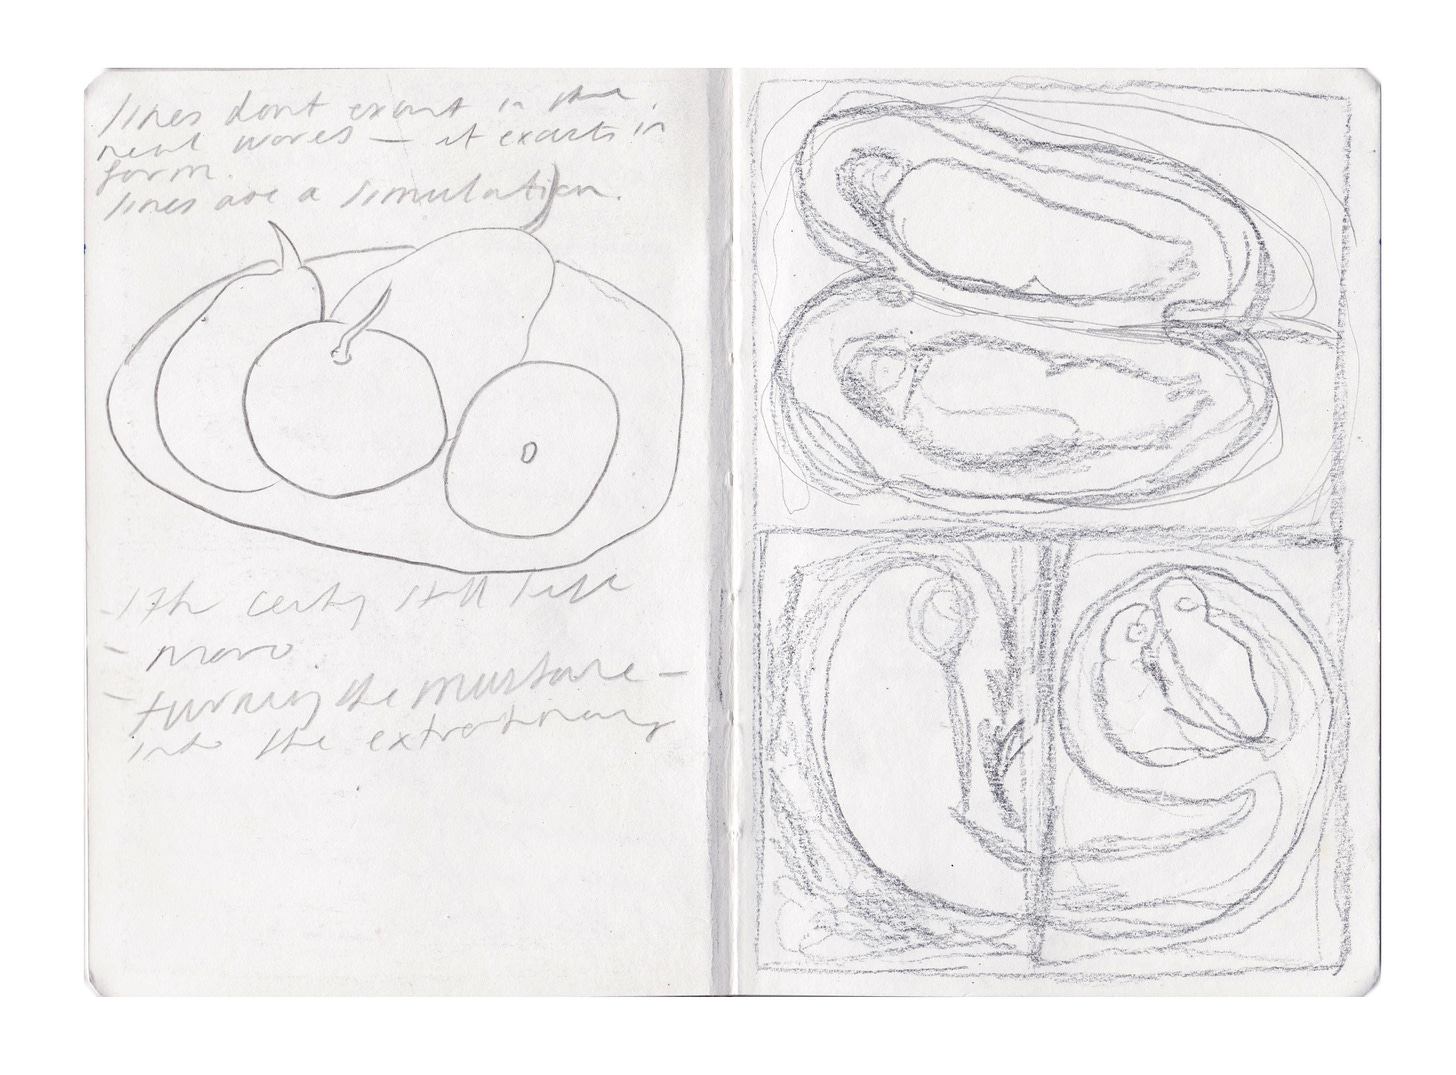 lines dont exist in the
real world – it exists in
form.
lines are a simulation.
- 17th centy still life
-
- turning the mundane –
into the extraordinary